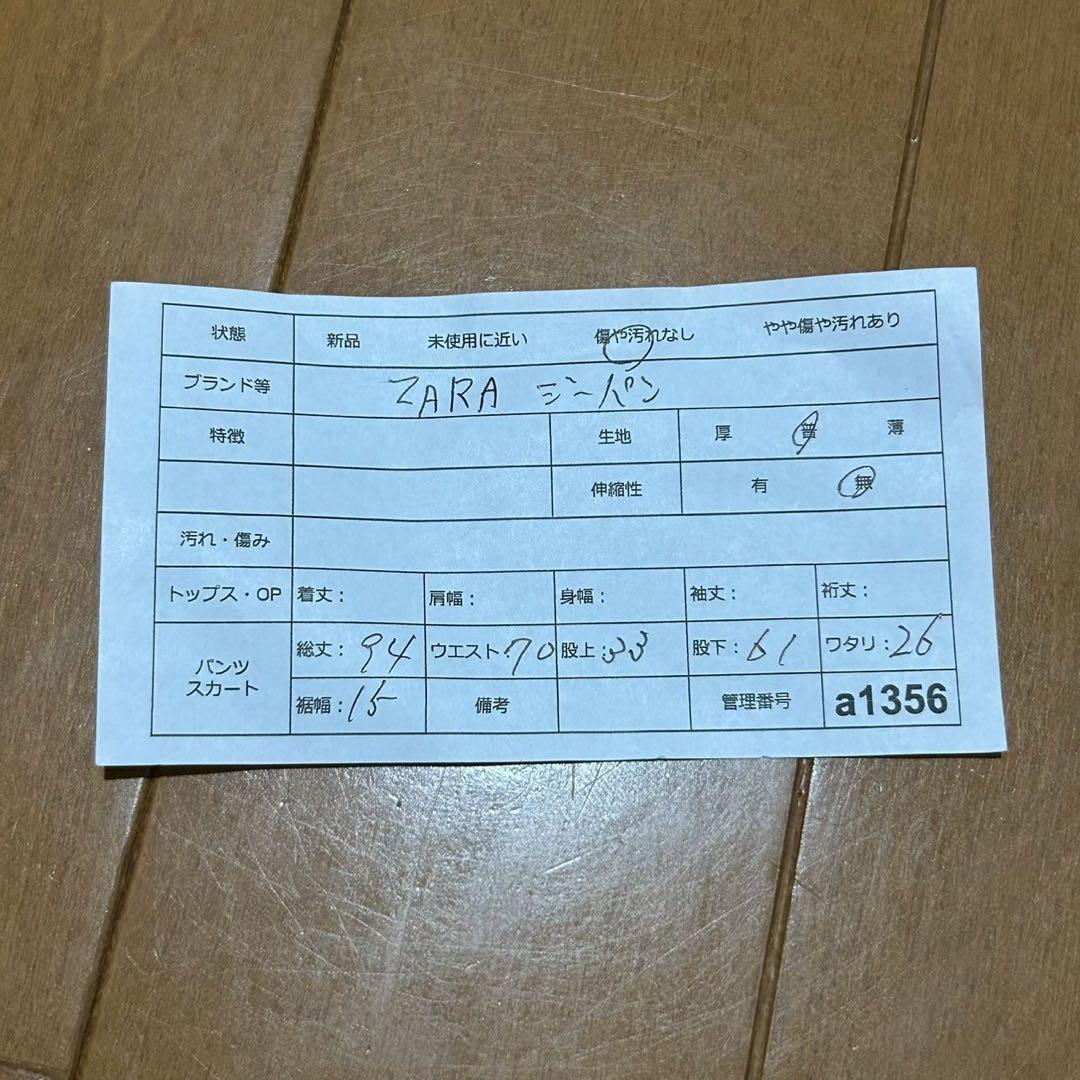 状態 新品 未使用に近い 傷や汚れなし やや傷や汚れあり
ブランド等 ZARA ジーパン
特徴 生地 厚 普 薄
伸縮性 有 無
汚れ・傷み
トップス・OP 着丈: 肩幅: 身幅: 袖丈: 裄丈:
パンツ スカート 総丈: 94 ウエスト: 70 股上: 33 股下: 61 ワタリ: 26
裾幅: 15 備考 管理番号 a1356